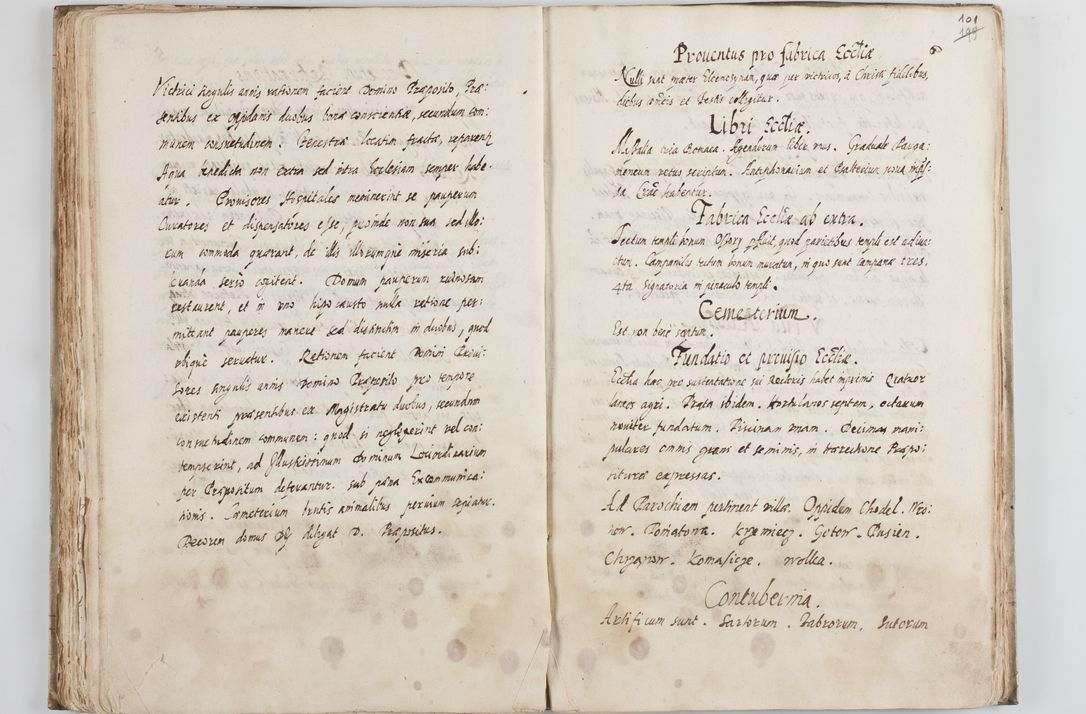 Victrici singulis annis rationem facient Domino Præposito, Præ:
sentibus ex Oppidanis duobus bonæ conscientiæ, secundum com:
munem consuetudinem. Fenestræ locatim fractæ, reparent
Aqua benedicta non extra sed intra Ecclesiam semper habe:
atur. Prouisores Hospitales meminerint se pauperum
Curatores et dispensatores esse, proinde non sua sed illo:
rum commoda quærant, de illis illorumque miseria sub:
leuanda serio cogitent. Domum pauperum ruinosam
restaurent, et in uno hipocausto nulla ratione per:
mittant pauperes manere sed distinctim in duobus, quod
ubique seruetur. Rationem facient Domini Proui:
sores singulis annis Domino Præposito pro tempore
existenti præsentibus ex Magistratu duobus, secundum
consuetudinem communem: quod si neglexerint vel con:
tempserint, ad Illustrissimum Dominum Loci ordinarium
per Præpositum deferantur. sub pæna Excommunica:
tionis. Cæmeterium brutis animalibus peruium sepiatur.
Decorem domus Dei diligat D. Præpositus.
101
199
Prouentus pro fabrica Ecctiæ
Nulli sunt præter Eleemosynam, quæ per victricos, à Christi fidelibus,
diebus Dominicis et Festis colligitur.
Libri Ecctiæ.
Missalia tria Romana. Agendorum liber unus. Graduale Parga:
meneum vetus scriptum. Antiphonarium et Psalterium noua impres:
sa Crac: habentur.
Fabrica Ecctiæ ab extra.
Tectum templi bonum. Ossary fuit, quod parietibus templi est adiun:
ctum. Campanile tectum bonum muratum, in quo sunt Campanæ tres,
4ta Signatoria in pinaculo templi.
Cemæterium.
Est non bene septum.
Fundatio et prouisio Ecctiæ.
Ecctia hæc pro sustentatione sui Rectoris habet inprimis Quatuor
laneos agri. Prata ibidem. Hortulanos septem, octauum
nouiter fundatum. Piscinam unam. Decimas mani:
pulares omnis grani et seminis, in Erectione Præpo:
situræ expressas.
Ad Parochiam pertinent villæ. Oppidum Chodel. Wro:
now. Poniatowa. Krzemięcz. Gotow. Pusien.
Chrzanow. Komasicze. Wolka.
Contubernia.
Artificum sunt. Sartorum. Fabrorum, Sutorum